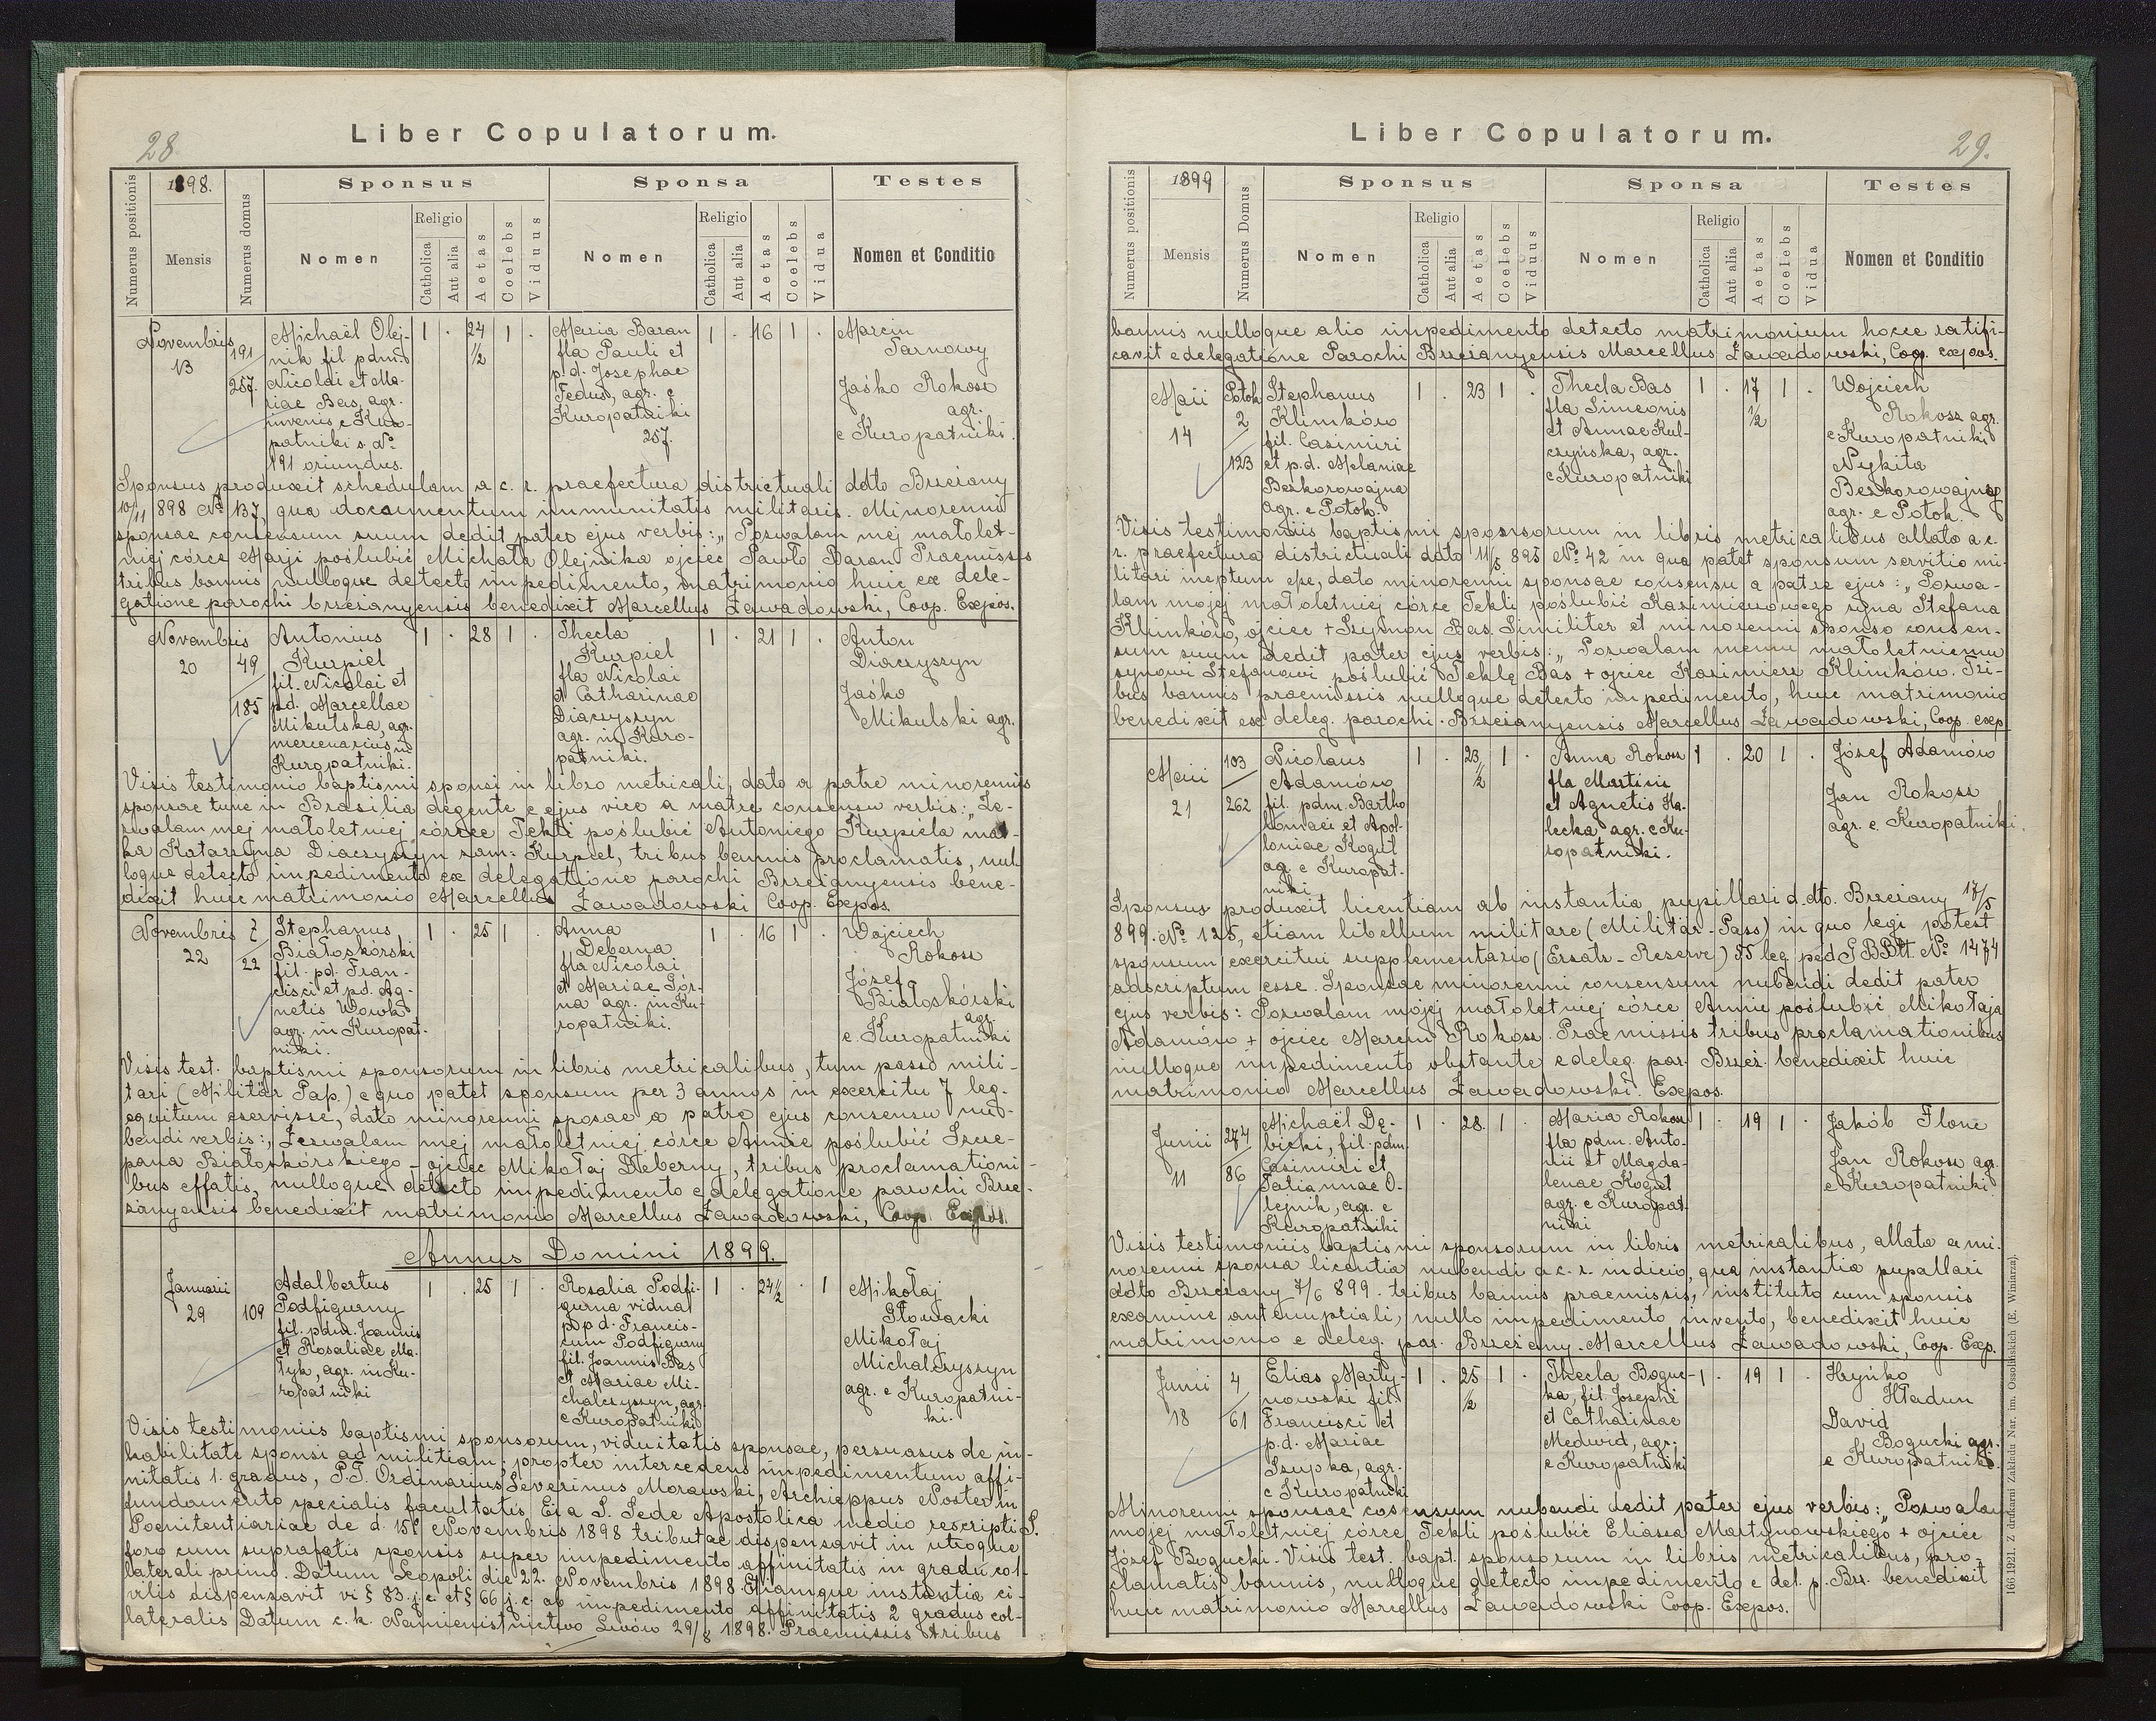 28.
Liber Copulatorum.
Numerus positionis
1898.
Mensis
Numerus domus
Sponsus
Nomen
Religio
Catholica
Aut alia
Aetas
Coelebs
Viduus
Sponsa
Nomen
Religio
Catholica
Aut alia
Aetas
Coelebs
Vidua
Testes
Nomen et Conditio
Novembris
13
191
257.
Michaël Olej-
nik fil pdm.
Nicolai et Ma-
riae Bas, agr.
juvenis e Kuro-
patniki s. No
191 oriundus.
1 . 24 1/2 1 .
Maria Baran
fla Pauli et
p.d. Josephae
Fedus, agr. e
Kuropatniki
257.
1 . 16 1 .
Marcin
Tarnowy
Jaśko Rokosz
agr.
e Kuropatniki.
Sponsus produxit schedulam a c. r. praefectura districtuali ddto Brzeżany
10/11 898 No 137, qua documentum immunitatis militaris. Minorenni
sponsae consensum suum dedit pater ejus verbis: „Pozwalam mej małolet-
niej córce Marji poślubić Michała Olejnika ojciec Pawło Baran. Praemissis
tribus bannis nulloque detecto impedimento, matrimonio huic ex dele-
gatione parochi brzeżanyensis benedixit Marcellus Zawadowski, Coop. Expos.
Novembris
20
49
185
Antonius
Kurpiel
fil. Nicolai et
p.d. Marcellae
Mikulska, agr.
mercenarius in
Kuropatniki.
1 . 28 1 .
Thecla
Kurpiel
fla Nicolai
et Catharinae
Diaczyszyn
agr. in Kuro-
patniki.
1 . 21 1 .
Anton
Diaczyszyn
Jaśko
Mikulski agr.
Visis testimonio baptismi sponsi in libro metricali, dato a patre minorennis
sponsae tunc in Brasilia degente e ejus vice a matre consensu verbis: „Ze-
zwalam mej małoletniej córce Tekli poślubić Antoniego Kurpiela mat-
ka Katarzyna Diaczyszyn zam: Kurpiel, tribus bannis proclamatis, nul-
loque detecto impedimento ex delegatione parochi Brzeżanyensis bene-
dixit huic matrimonio Marcellus Zawadowski Coop. Expos.
Novembris
22
7
22
Stephanus
Białoskórski
fil. pd. Fran-
cisci et pd. Ag-
netis Wowk
agr. in Kuropat-
niki.
1 . 25 1 .
Anna
Deberna
fla Nicolai
et Mariae Gór-
na agr. in Ku-
ropatniki.
1 . 16 1 .
Wojciech
Rokosz
Józef
Białoskórski
agr.
e Kuropatniki
Visis test. baptismi sponsorum in libris metricalibus, tum passo mili-
tari (Militär Paß.) e quo patet sponsum per 3 annos in exercitu 7 leg.
equitum servisse, dato minorenni sposae a patre ejus consensu nu-
bendi verbis: „Zezwalam mej małoletniej córce Annie poślubić Szcze-
pana Białoskórskiego – ojciec Mikołaj Deberny, tribus proclamationi-
bus effatis, nulloque detecto impedimento e delegatione parochi Brze-
żanyensis benedixit matrimonio Marcellus Zawadowski, Coop. Expos.
Annus Domini 1899.
Januarii
29
109
Adalbertus
Podfigurny
fil. pdm. Joannis
et Rosaliae Ma-
tyk, agr. in Ku-
ropatniki
1 . 25 1 .
Rosalia Podfi-
gurna vidua
po p.d. Francis-
cum Podfigurny
fil. Joannis Bas
et Mariae Mi-
chalczyszyn, agr.
e Kuropatniki
1 . 24 1/2 . 1
Mikołaj
Słowacki
Mikołaj
Michalczyszyn
agr. e Kuropatni-
ki.
Visis testimoniis baptismi sponsorum, viduitatis sponsae, persuasus de in-
habilitate sponsi ad militiam; propter intercedens impedimentum affi-
nitatis 1. gradus, P.T. Ordinarius Severinus Morawski, Archieppus Noster in
fundamento specialis facultatis Ei a S. Sede Apostolica medio rescripti S.
Poenitentiariae de d. 15. Novembris 1898 tributae dispensavit in utroque
foro cum suprafatis sponsis super impedimento affinitatis in gradu col-
laterali primo. Datum Leopoli die 22. Novembris 1898. Etiamque instantia ci-
vilis dispensavit vi § 83. j.c. et § 66 j. c. ab impedimento affinitatis 2 gradus col-
lateralis Datum c. k. Namiestnictwo Lwów 29/8 1898. Praemissis tribus
29.
Liber Copulatorum.
Numerus positionis
1899
Mensis
Numerus Domus
Sponsus
Nomen
Religio
Catholica
Aut alia
Aetas
Coelebs
Viduus
Sponsa
Nomen
Religio
Catholica
Aut alia
Aetas
Coelebs
Vidua
Testes
Nomen et Conditio
bannis nulloque alio impedimento detecto matrimonium hocce ratifi-
cavit e delegatione Parochi Brzeżanyensis Marcellus Zawadowski, Coop. expos.
Maii
14
Potok
2
123
Stephanus
Klimków
fil. Casimiri
et p.d. Melaniae
Bezkorowajna
agr. e Potok.
1 . 23 1 .
Thecla Bas
fla Simeonis
et Annae Kul-
czyńska, agr.
e Kuropatniki
1 . 17 1/2 1 .
Wojciech
Rokosz agr.
e Kuropatniki
Nykita
Bezkorowajny
agr. e Potok.
Visis testimoniis baptismi sponsorum in libris metricalibus allato a c.
r. praefectura districtuali dato 11/5 895 No 42 in qua patet sponsum servitio mi-
litari ineptum esse, dato minorenni sponsae consensu a patre ejus: „Pozwa-
lam mojej małoletniej córce Tekli poślubić Kazimierowego syna Stefana
Klimków, ojciec + Szymon Bas. Similiter et minorenni sponso consen-
sum suum dedit pater ejus verbis: „Pozwalam memu małoletniemu
synowi Stefanowi poślubić Teklę Bas + ojciec Kazimierz Klimków. Tri-
bus bannis praemissis nulloque detecto impedimento, huic matrimonio
benedixit ex deleg. parochi. Brzeżanyensis Marcellus Zawadowski, Coop. exp
Maii
21
103
262
Nicolaus
Adamów
fil. pdm. Bartho
lomaei et Apol-
loniae Kogut
ag. e Kuropat-
niki
1 . 23 1/2 1 .
Anna Rokosz
fla Martini
et Agnetis Ha-
lecka agr. e Ku-
ropatniki.
1 . 20 1 .
Józef Adamów
Jan Rokosz
agr. e. Kuropatniki.
Sponsus produxit licentiam ab instantia pupillari d. dto. Brzeżany 17/5
899. No 125, etiam libellum militare (Militär-Pass) in quo legi potest
sponsum exercitui supplementario (Ersatz-Reserve) 55 leg ped No 1474
adscriptum esse. Sponsae minorenni consensum nubendi dedit pater
ejus verbis: Pozwalam mojej małoletniej córce Annie poślubić Mikołaja
Adamów + ojciec Marcin Rokosz. Praemissis tribus proclamationibus
nulloque impedimento obstante e deleg. par. Brzeż. benedixit huic
matrimonio Marcellus Zawadowski. Expos.
Junii
11
274
86
Michaël Dę-
bicki, fil. pdm.
Casimiri et
Tatiannae O-
lejnik, agr. e
Kuropatniki
1 . 28. 1 .
Maria Rokosz
fla pdm. Anto-
nii et Magda-
lenae Kogut
agr. e Kuropat-
niki
1 . 19 1 .
Jakób Flone
Jan Rokosz agr.
e Kuropatniki.
Visis testimoniis baptismi sponsorum in libris metricalibus, allata a mi-
norenni sponsa licentia nubendi a c. r. iudicio, qua instantia pupallari
ddto Brzeżany 7/6 899. tribus bannis praemissis, instituto cum sponsis
examine antenuptiali, nullo impedimento invento, benedixit huic
matrimonio e deleg. par. Brzeżany. Marcellus Zawadowski, Coop. Exp.
Junii
18
4
61
Elias Marty-
nowski fil.
Francisci et
p.d. Mariae
Szupka, agr.
e Kuropatniki
1 . 25 1/2 1 .
Thecla Boguc-
ka, fil. Josephi
et Catharinae
Medwid, agr.
e Kuropatniki
1 . 19 1 .
Hryńko
Hładun
David
Bogucki agr.
e Kuropatniki.
Minorenni sponsae cosensum nubendi dedit pater ejus verbis: „Pozwalam
mojej małoletniej córce Tekli poślubić Eliasza Martynowskiego + ojciec
Józef Bogucki. Visis test. bapt. sponsorum in libris metricalibus, pro-
clamatis bannis, nulloque detecto impedimento e del. p. Brz. benedixit
huic matrimonio Marcellus Zawadowski Coop. Expos.
166 1921. Z drukarni Zakładu Nar. im. Ossolińskich (E. Winiarza).